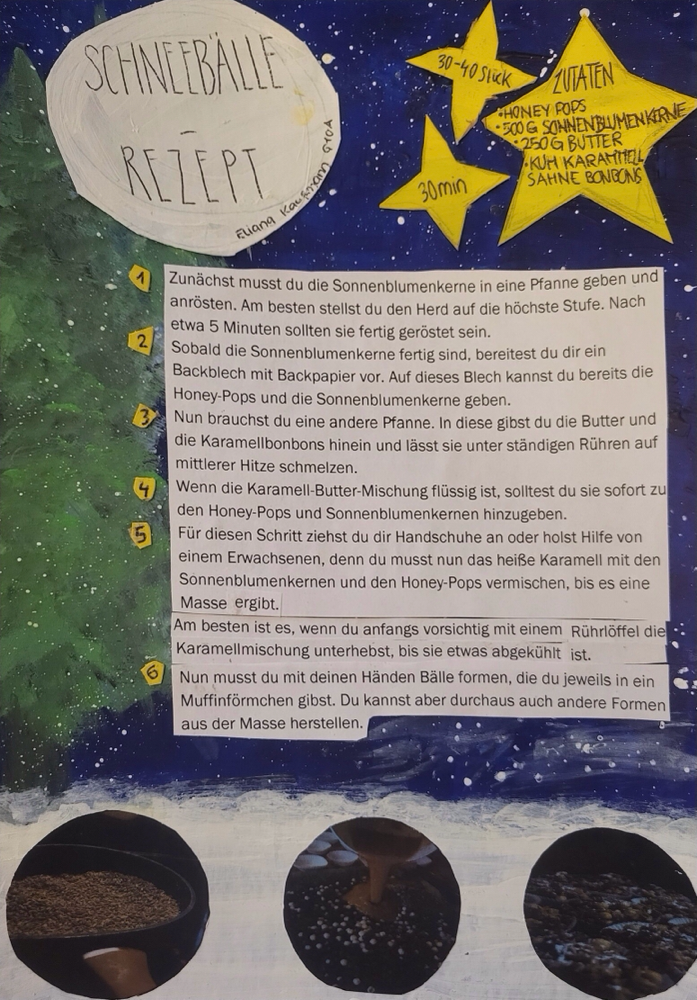 SCHNEEBÄLLE
-
REZEPT
Eliana Kaufmann G10A
30-40 Stück
30min
ZUTATEN
•HONEY POPS
•500 G SONNENBLUMENKERNE
•250 G BUTTER
•KUH KARAMELL
SAHNE BONBONS
1
Zunächst musst du die Sonnenblumenkerne in eine Pfanne geben und
anrösten. Am besten stellst du den Herd auf die höchste Stufe. Nach
etwa 5 Minuten sollten sie fertig geröstet sein.
2
Sobald die Sonnenblumenkerne fertig sind, bereitest du dir ein
Backblech mit Backpapier vor. Auf dieses Blech kannst du bereits die
Honey-Pops und die Sonnenblumenkerne geben.
3
Nun brauchst du eine andere Pfanne. In diese gibst du die Butter und
die Karamellbonbons hinein und lässt sie unter ständigen Rühren auf
mittlerer Hitze schmelzen.
4
Wenn die Karamell-Butter-Mischung flüssig ist, solltest du sie sofort zu
den Honey-Pops und Sonnenblumenkernen hinzugeben.
5
Für diesen Schritt ziehst du dir Handschuhe an oder holst Hilfe von
einem Erwachsenen, denn du musst nun das heiße Karamell mit den
Sonnenblumenkernen und den Honey-Pops vermischen, bis es eine
Masse ergibt.
Am besten ist es, wenn du anfangs vorsichtig mit einem Rührlöffel die
Karamellmischung unterhebst, bis sie etwas abgekühlt ist.
6
Nun musst du mit deinen Händen Bälle formen, die du jeweils in ein
Muffinförmchen gibst. Du kannst aber durchaus auch andere Formen
aus der Masse herstellen.